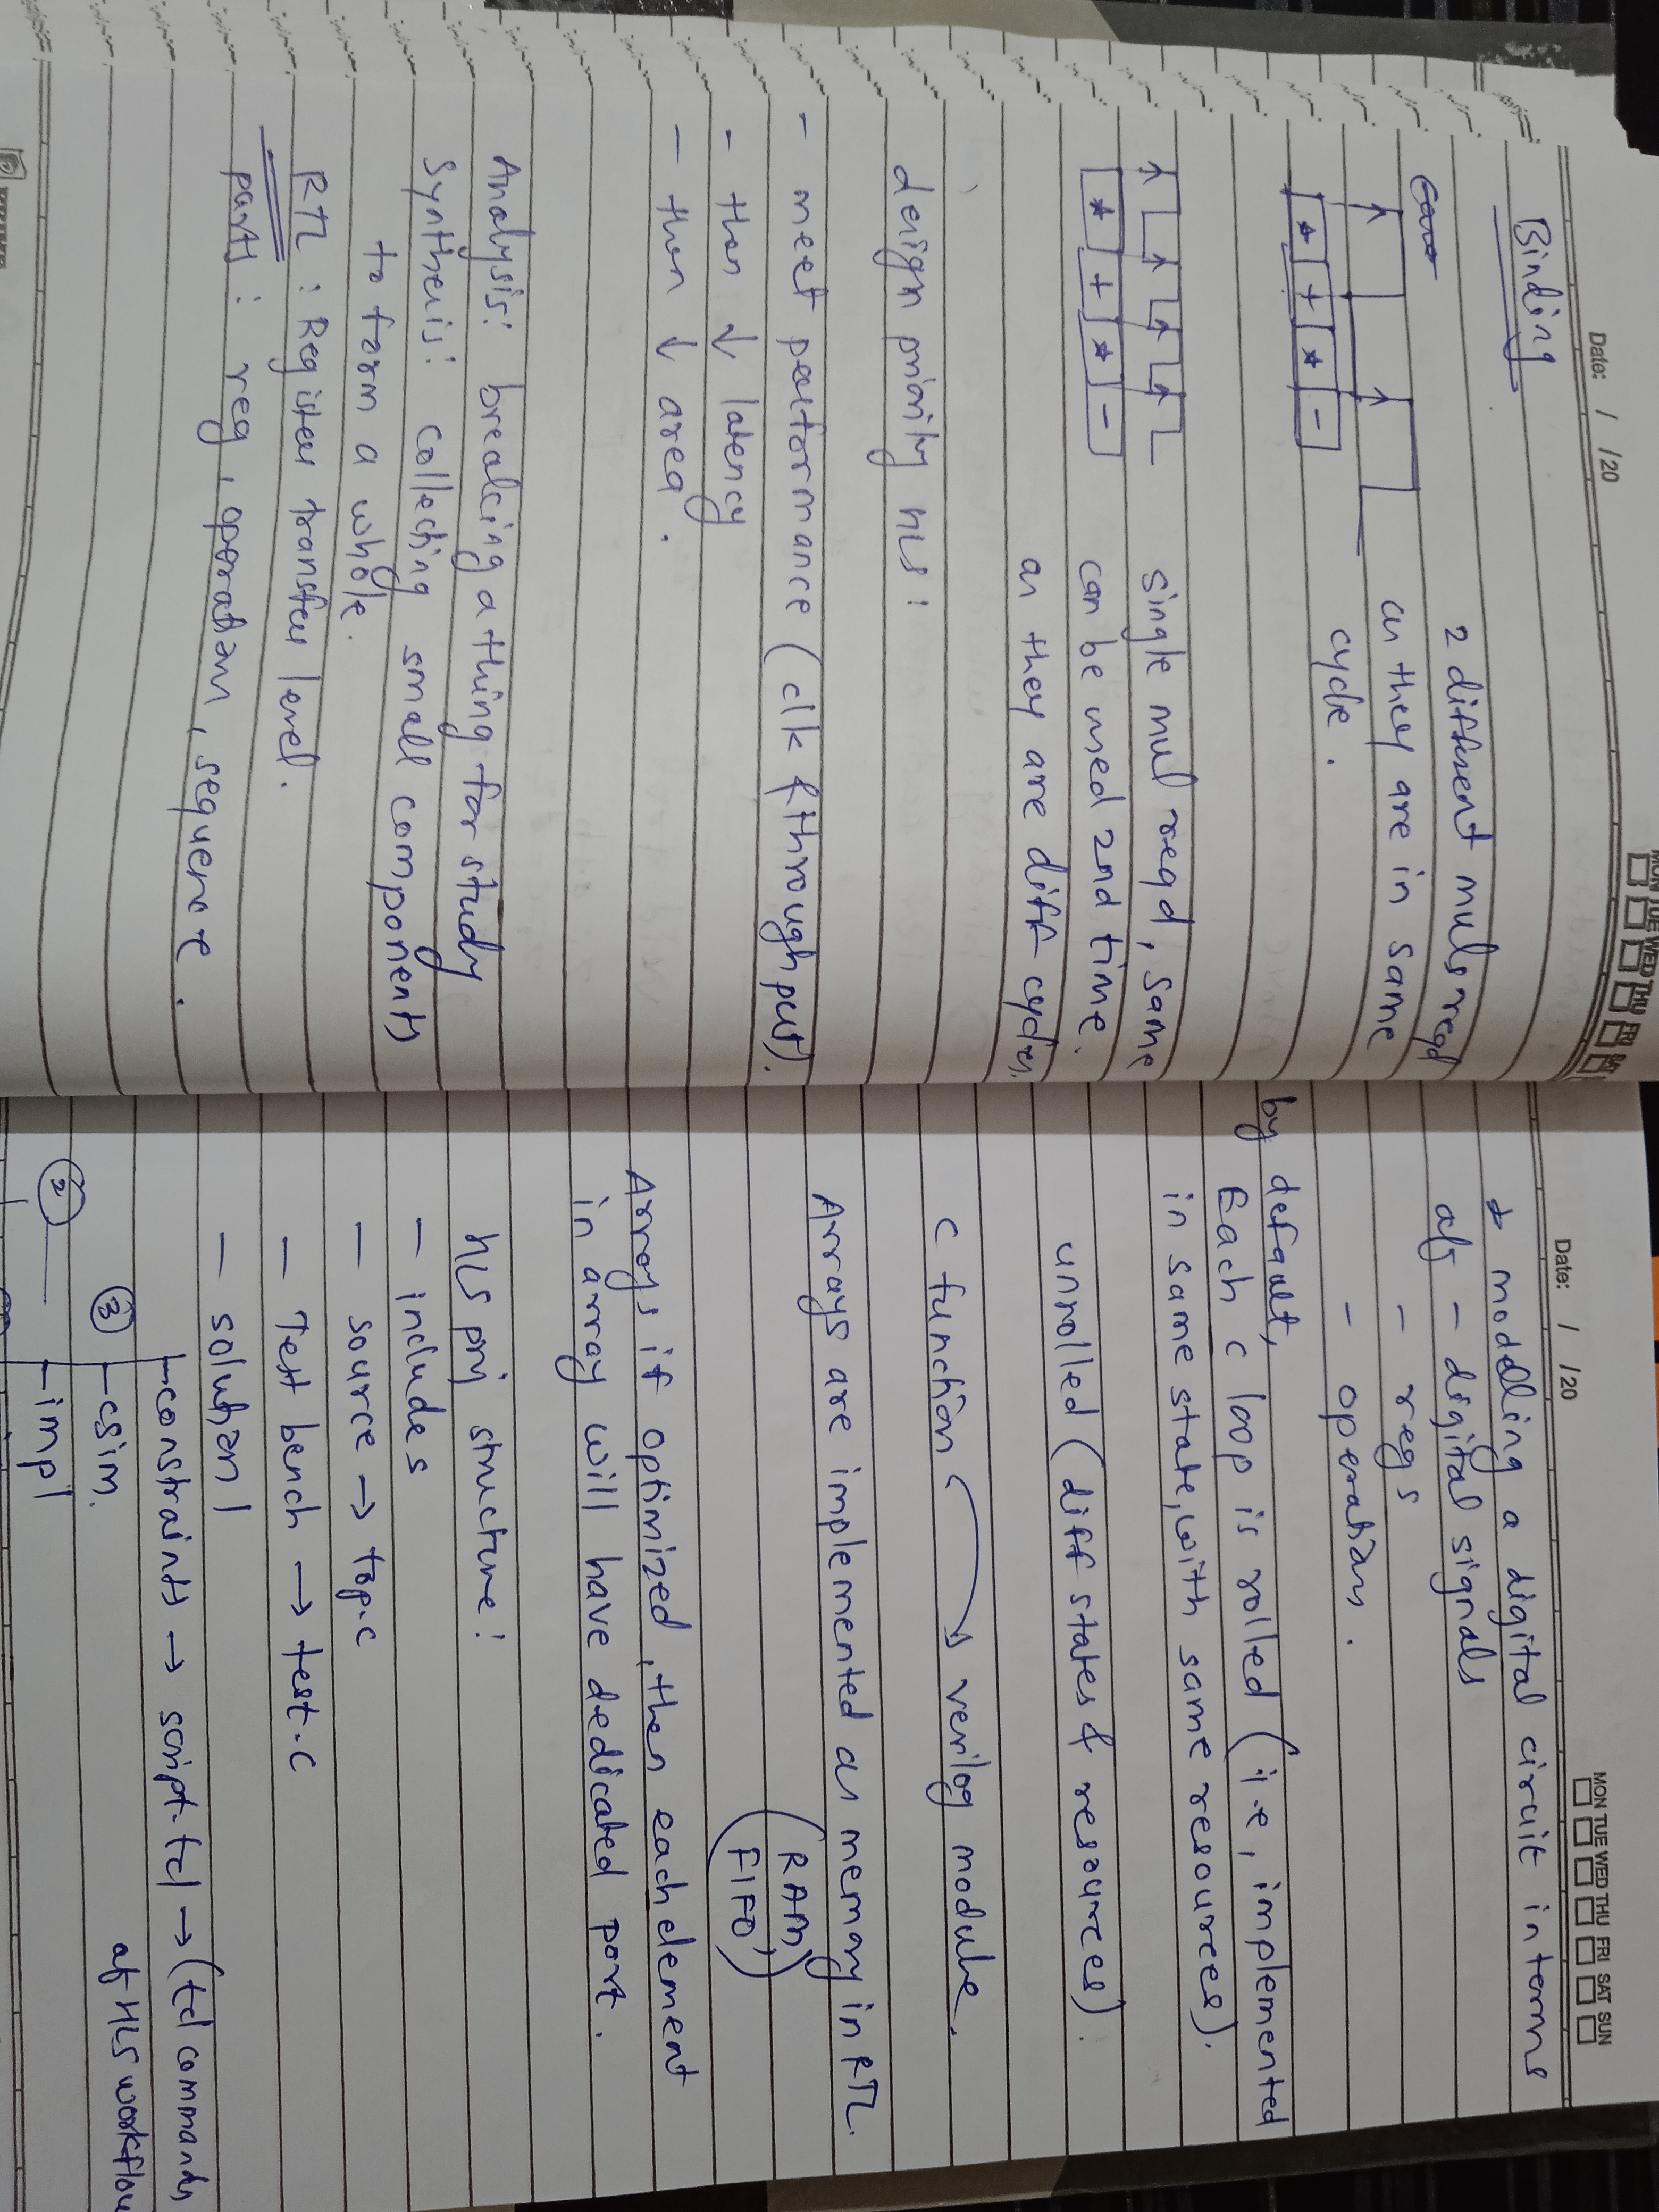 Date: / /20
MON TUE WED THU FRI SAT
Binding
2 different muls reqd
as they are in same
cycle.
* + * -
single mul reqd, same
can be used 2nd time.
as they are diff cycles.
* + * -
design priority HLS:
- meet performance (clk & throughput).
- then ↓ latency
- then ↓ area.
Analysis: breaking a thing for study
Synthesis: collecting small components
to form a whole.
RTL: Register transfer level.
parts: reg, operation, sequence.
Date: / /20
MON TUE WED THU FRI SAT SUN
* modelling a digital circuit in terms
of - digital signals
- regs
- operations.
by default,
Each c loop is rolled (i.e, implemented
in same state, with same resources).
unrolled (diff states & resources).
C function → verilog module.
Arrays are implemented as memory in RTL.
(RAM,
FIFO)
Arrays if optimized, then each element
in array will have dedicated port.
HLS prj structure:
- includes
- source → top.c
- Test bench → test.c
- solution 1
constraints → script.tcl → (tcl commands
of HLS workflow
③ csim.
② impl